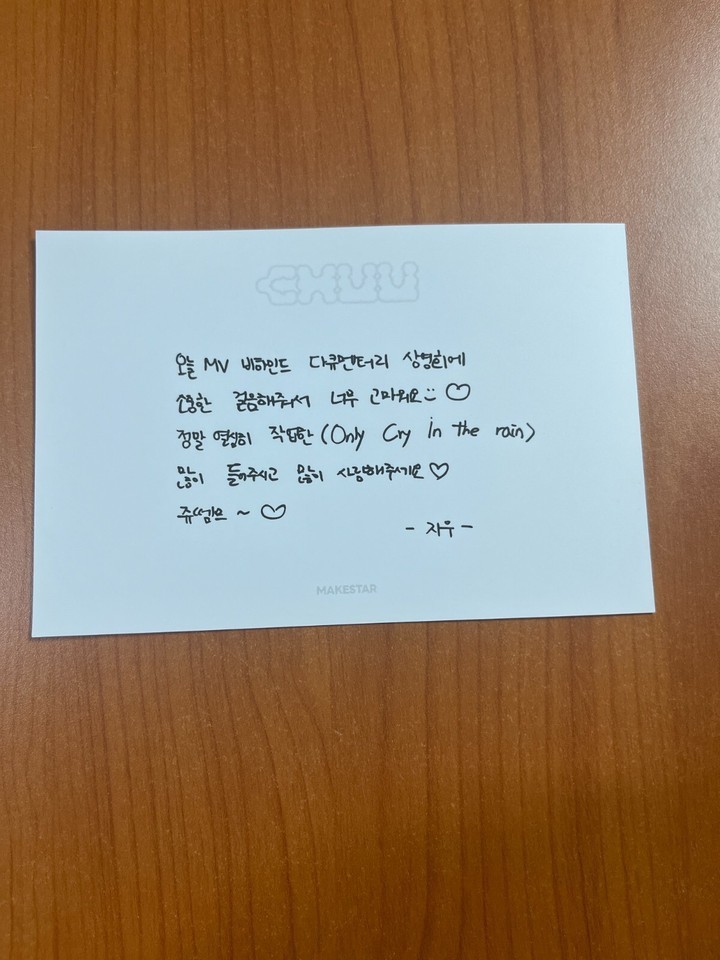 CHUU
오늘 MV 비하인드 다큐멘터리 상영회에
소중한 걸음해주셔서 너무 고마워요 :) ♡
정말 열심히 작업한 (Only Cry in the rain)
많이 들어주시고 많이 사랑해주세요 ♡
쥬뗌므 ~ ♡
- 지우 -
MAKESTAR